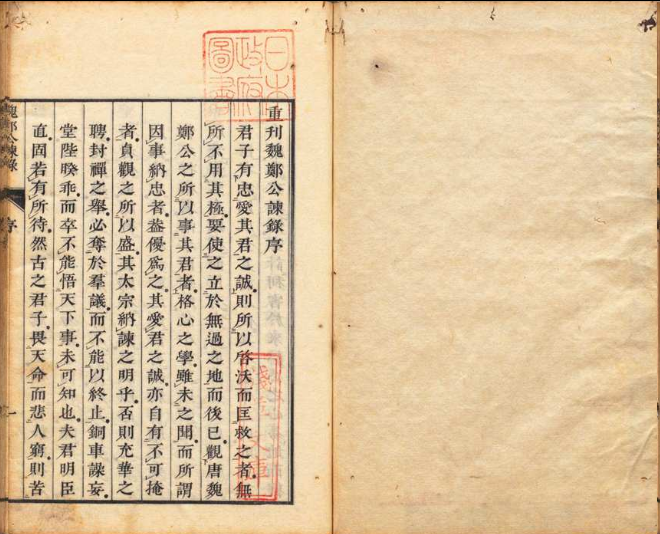 重刊魏鄭公諫錄序
君子有忠愛其君之誠則所以啓沃而匡救之者無
所不用其極要使之立於無過之地而後已觀唐魏
鄭公之所以事其君者格心之學雖未之聞而所謂
因事納忠者葢優爲之其愛君之誠亦自有不可掩
者貞觀之所以盛其太宗納諫之明乎否則充華之
聘封禪之舉必奪於羣議而不能以終止銅車諜妄
堂陛睽乖而卒不能悟天下事未可知也夫君明臣
直固若有所待然古之君子畏天命而悲人窮則苦
魏鄭公諫錄
序
一
日本
政府
圖書